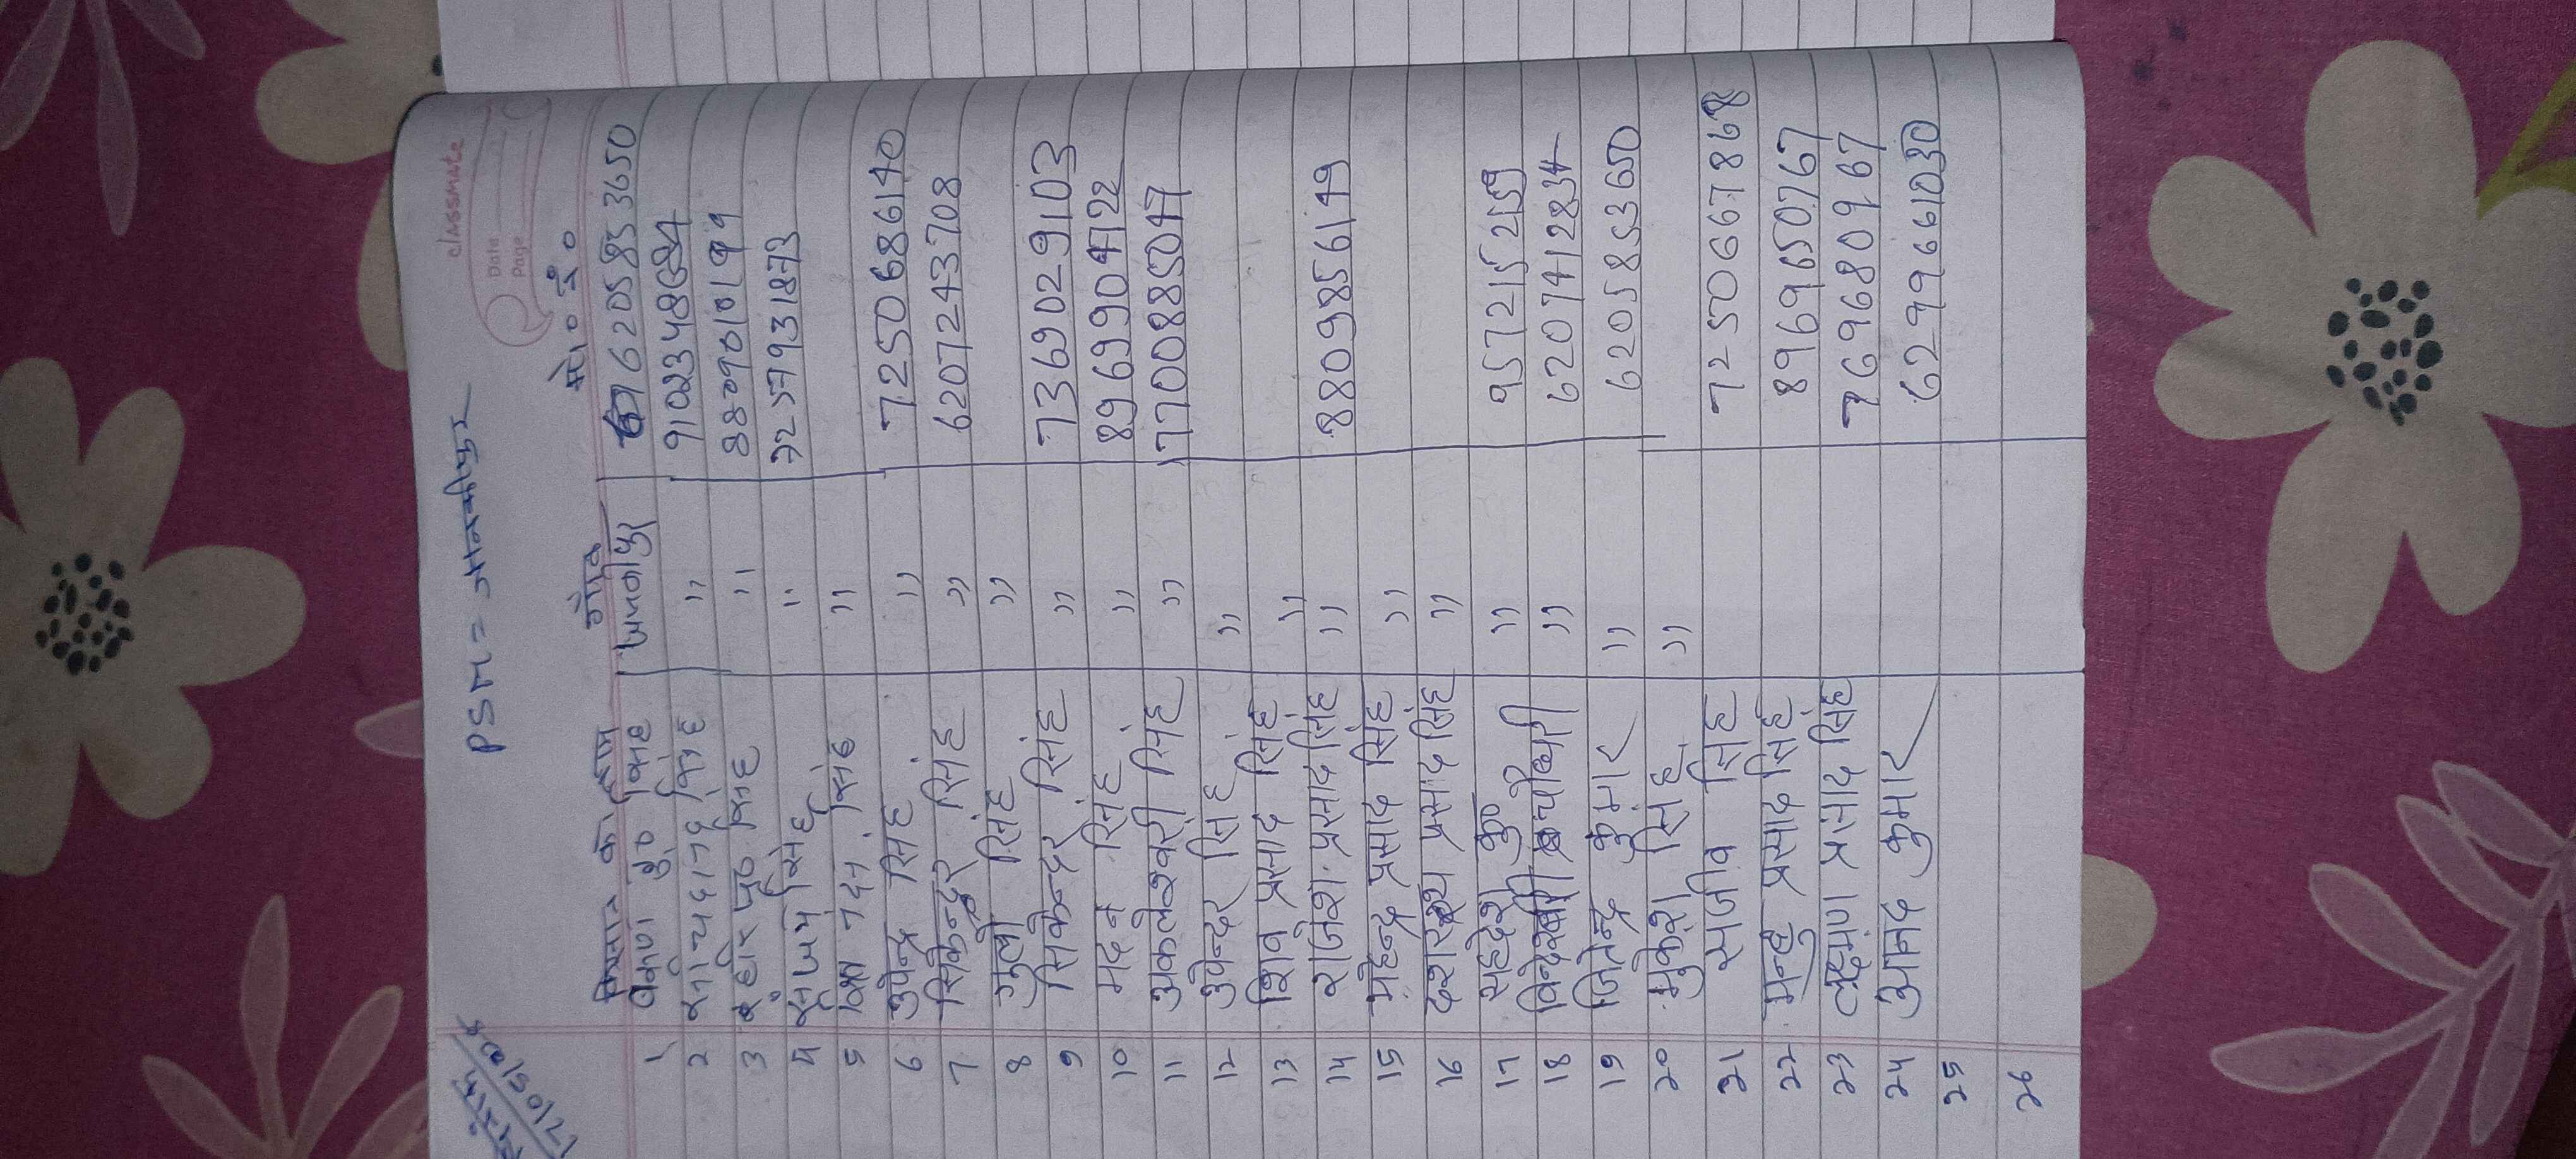 classmate
Date
Page
PSM =
किसान का नाम गाँव मो० नं०
1 कु० सिंह 6205853650
2 सिंह " 9102348684
3 सिंह " 8809010199
4 सिंह " 7257931873
5 सिंह "
6 उपेन्द्र सिंह " 7250686140
7 सिकेन्दर सिंह " 6207243708
8 सिंह "
9 सिकेन्दर सिंह " 7369029103
10 मदन सिंह " 8969904722
11 अकलेश्वरी सिंह " 7700885047
12 उपेन्दर सिंह "
13 शिव प्रसाद सिंह "
14 राजेश प्रसाद सिंह " 8809856149
15 महेन्द्र प्रसाद सिंह "
16 प्रसाद सिंह "
17 कु० " 9572152159
18 चौधरी " 6207412834
19 जितेन्द्र कुमार " 6205853650
20 मुकेश सिंह "
21 सजीव सिंह 7250667868
22 मन्टु प्रसाद सिंह 8969650767
23 लक्ष्मण प्रसाद सिंह 769680967
24 आनंद कुमार 6299661030
25
26